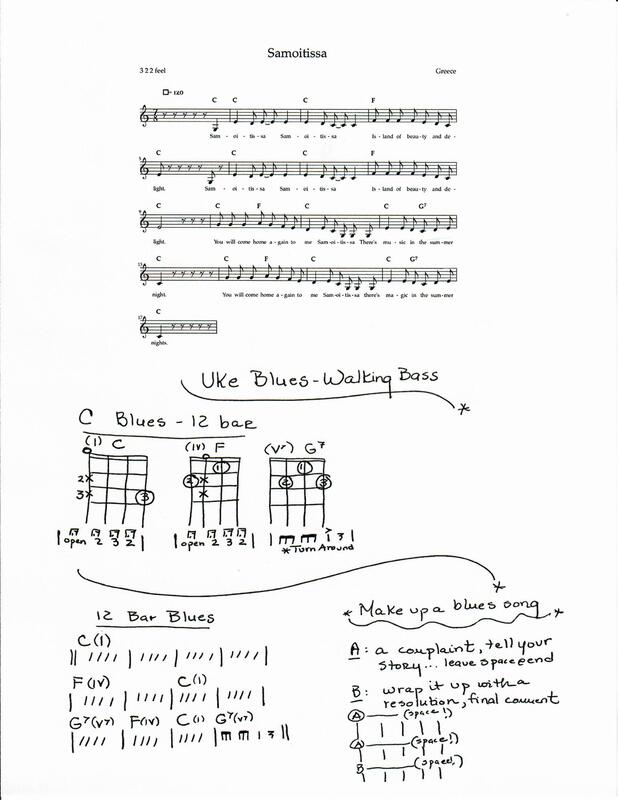 Samoitissa
3 2 2 feel Greece
= 120
C C C F
Sam - oi - tis - sa Sam - oi - tis - sa Is - land of beau - ty and de -
C C C F
light. Sam - oi - tis - sa Sam - oi - tis - sa Is - land of beau - ty and de -
C C F C C G7
light. You will come home a - gain to me Sam - oi - tis - sa There's mu - sic in the sum - mer
C C F C C G7
night. You will come home a - gain to me Sam - oi - tis - sa there's ma - gic in the summer
C
nights.
Uke Blues - Walking Bass
*
C Blues - 12 bar
(I) C (IV) F (V7) G7
1
2 x 2 x 2 3
3 x 3 x
open 2 3 2 open 2 3 2 1 3
* Turn Around
*
12 Bar Blues
C (I)
F (IV) C (I)
G7 (V7) F (IV) C (I) G7 (V7)
1 3
* Make up a blues song *
A: a complaint, tell your
story... leave space @ end
B: wrap it up with a
resolution, final comment
A (space!)
A (space!)
B (space!)